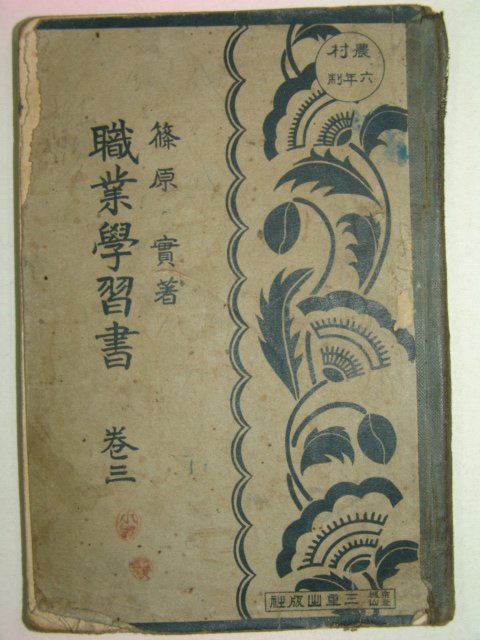 農村
六年制
篠原實著
職業學習書 卷三
三重出版社